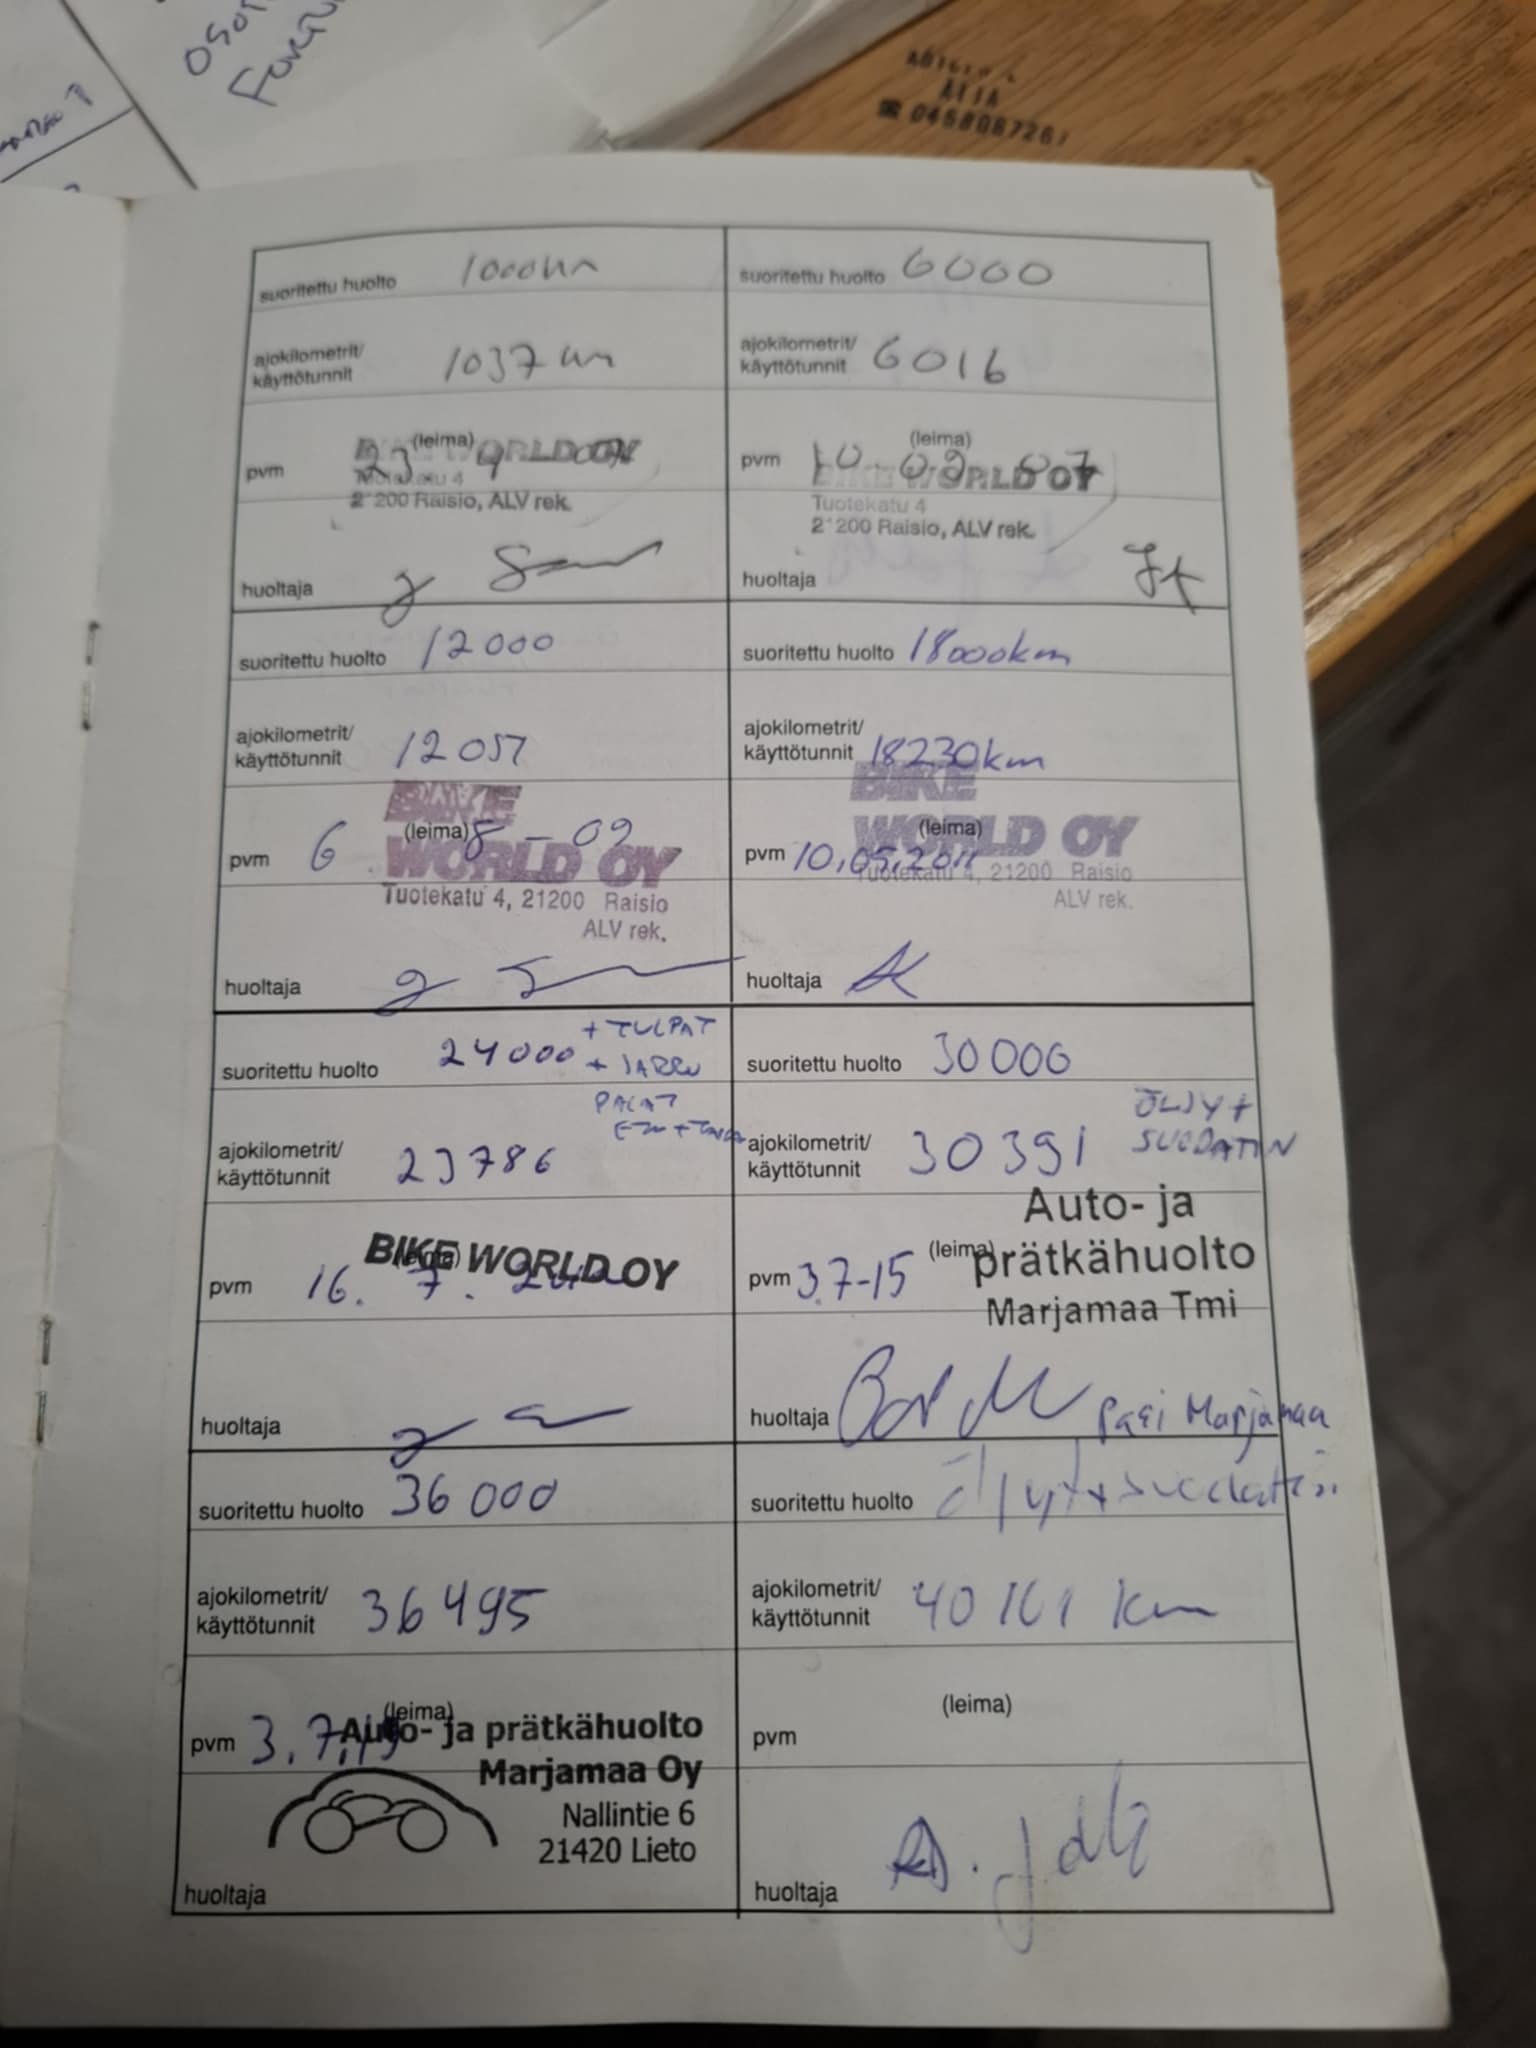 046806726
suoritettu huolto 1000km
ajokilometrit/
käyttötunnit 1037 km
(leima)
pvm 23 9 07
BIKE WORLD OY
Tuotekatu 4
2 200 Raisio, ALV rek.
huoltaja
suoritettu huolto 6000
ajokilometrit/
käyttötunnit 6016
(leima)
pvm 10.09.07
BIKE WORLD OY
Tuotekatu 4
2 200 Raisio, ALV rek.
huoltaja
suoritettu huolto 12000
ajokilometrit/
käyttötunnit 12057
(leima)
pvm 6 8 - 09
BIKE
WORLD OY
Tuotekatu 4, 21200 Raisio
ALV rek.
huoltaja
suoritettu huolto 18000km
ajokilometrit/
käyttötunnit 18230km
(leima)
pvm 10.05.2011
BIKE
WORLD OY
Tuotekatu 4, 21200 Raisio
ALV rek.
huoltaja
suoritettu huolto 24000 + TULPAT
+ JARRU
PALAT
ajokilometrit/
käyttötunnit 23786
(leima)
BIKE WORLD OY
pvm 16. 7.
huoltaja
suoritettu huolto 30000
ÖLJY +
SUODATIN
ajokilometrit/
käyttötunnit 30391
Auto- ja
prätkähuolto
Marjamaa Tmi
(leima)
pvm 3.7-15
huoltaja Pasi Marjamaa
suoritettu huolto 36000
ajokilometrit/
käyttötunnit 36495
(leima)
pvm 3.7.19
Auto- ja prätkähuolto
Marjamaa Oy
Nallintie 6
21420 Lieto
huoltaja
suoritettu huolto öljyt+suodatin
ajokilometrit/
käyttötunnit 40161 km
(leima)
pvm
huoltaja